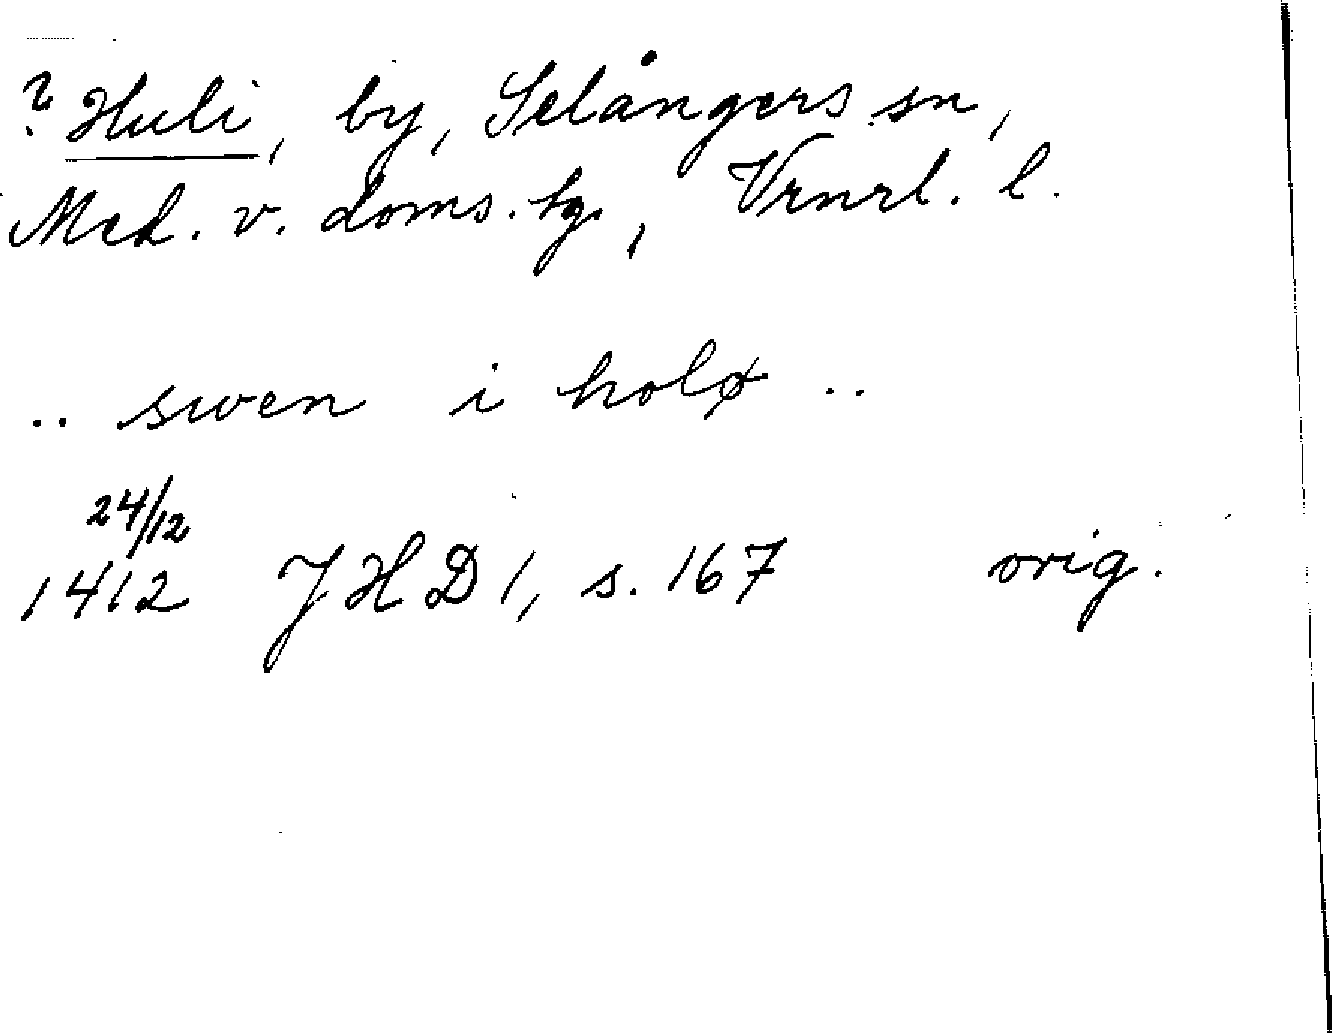 ? Huli, by, Selångers sn,
Med. v. doms. tg., Vrnrl. l.
.. swen i holø ..
24/12
1412 JHD 1, s. 167 orig.